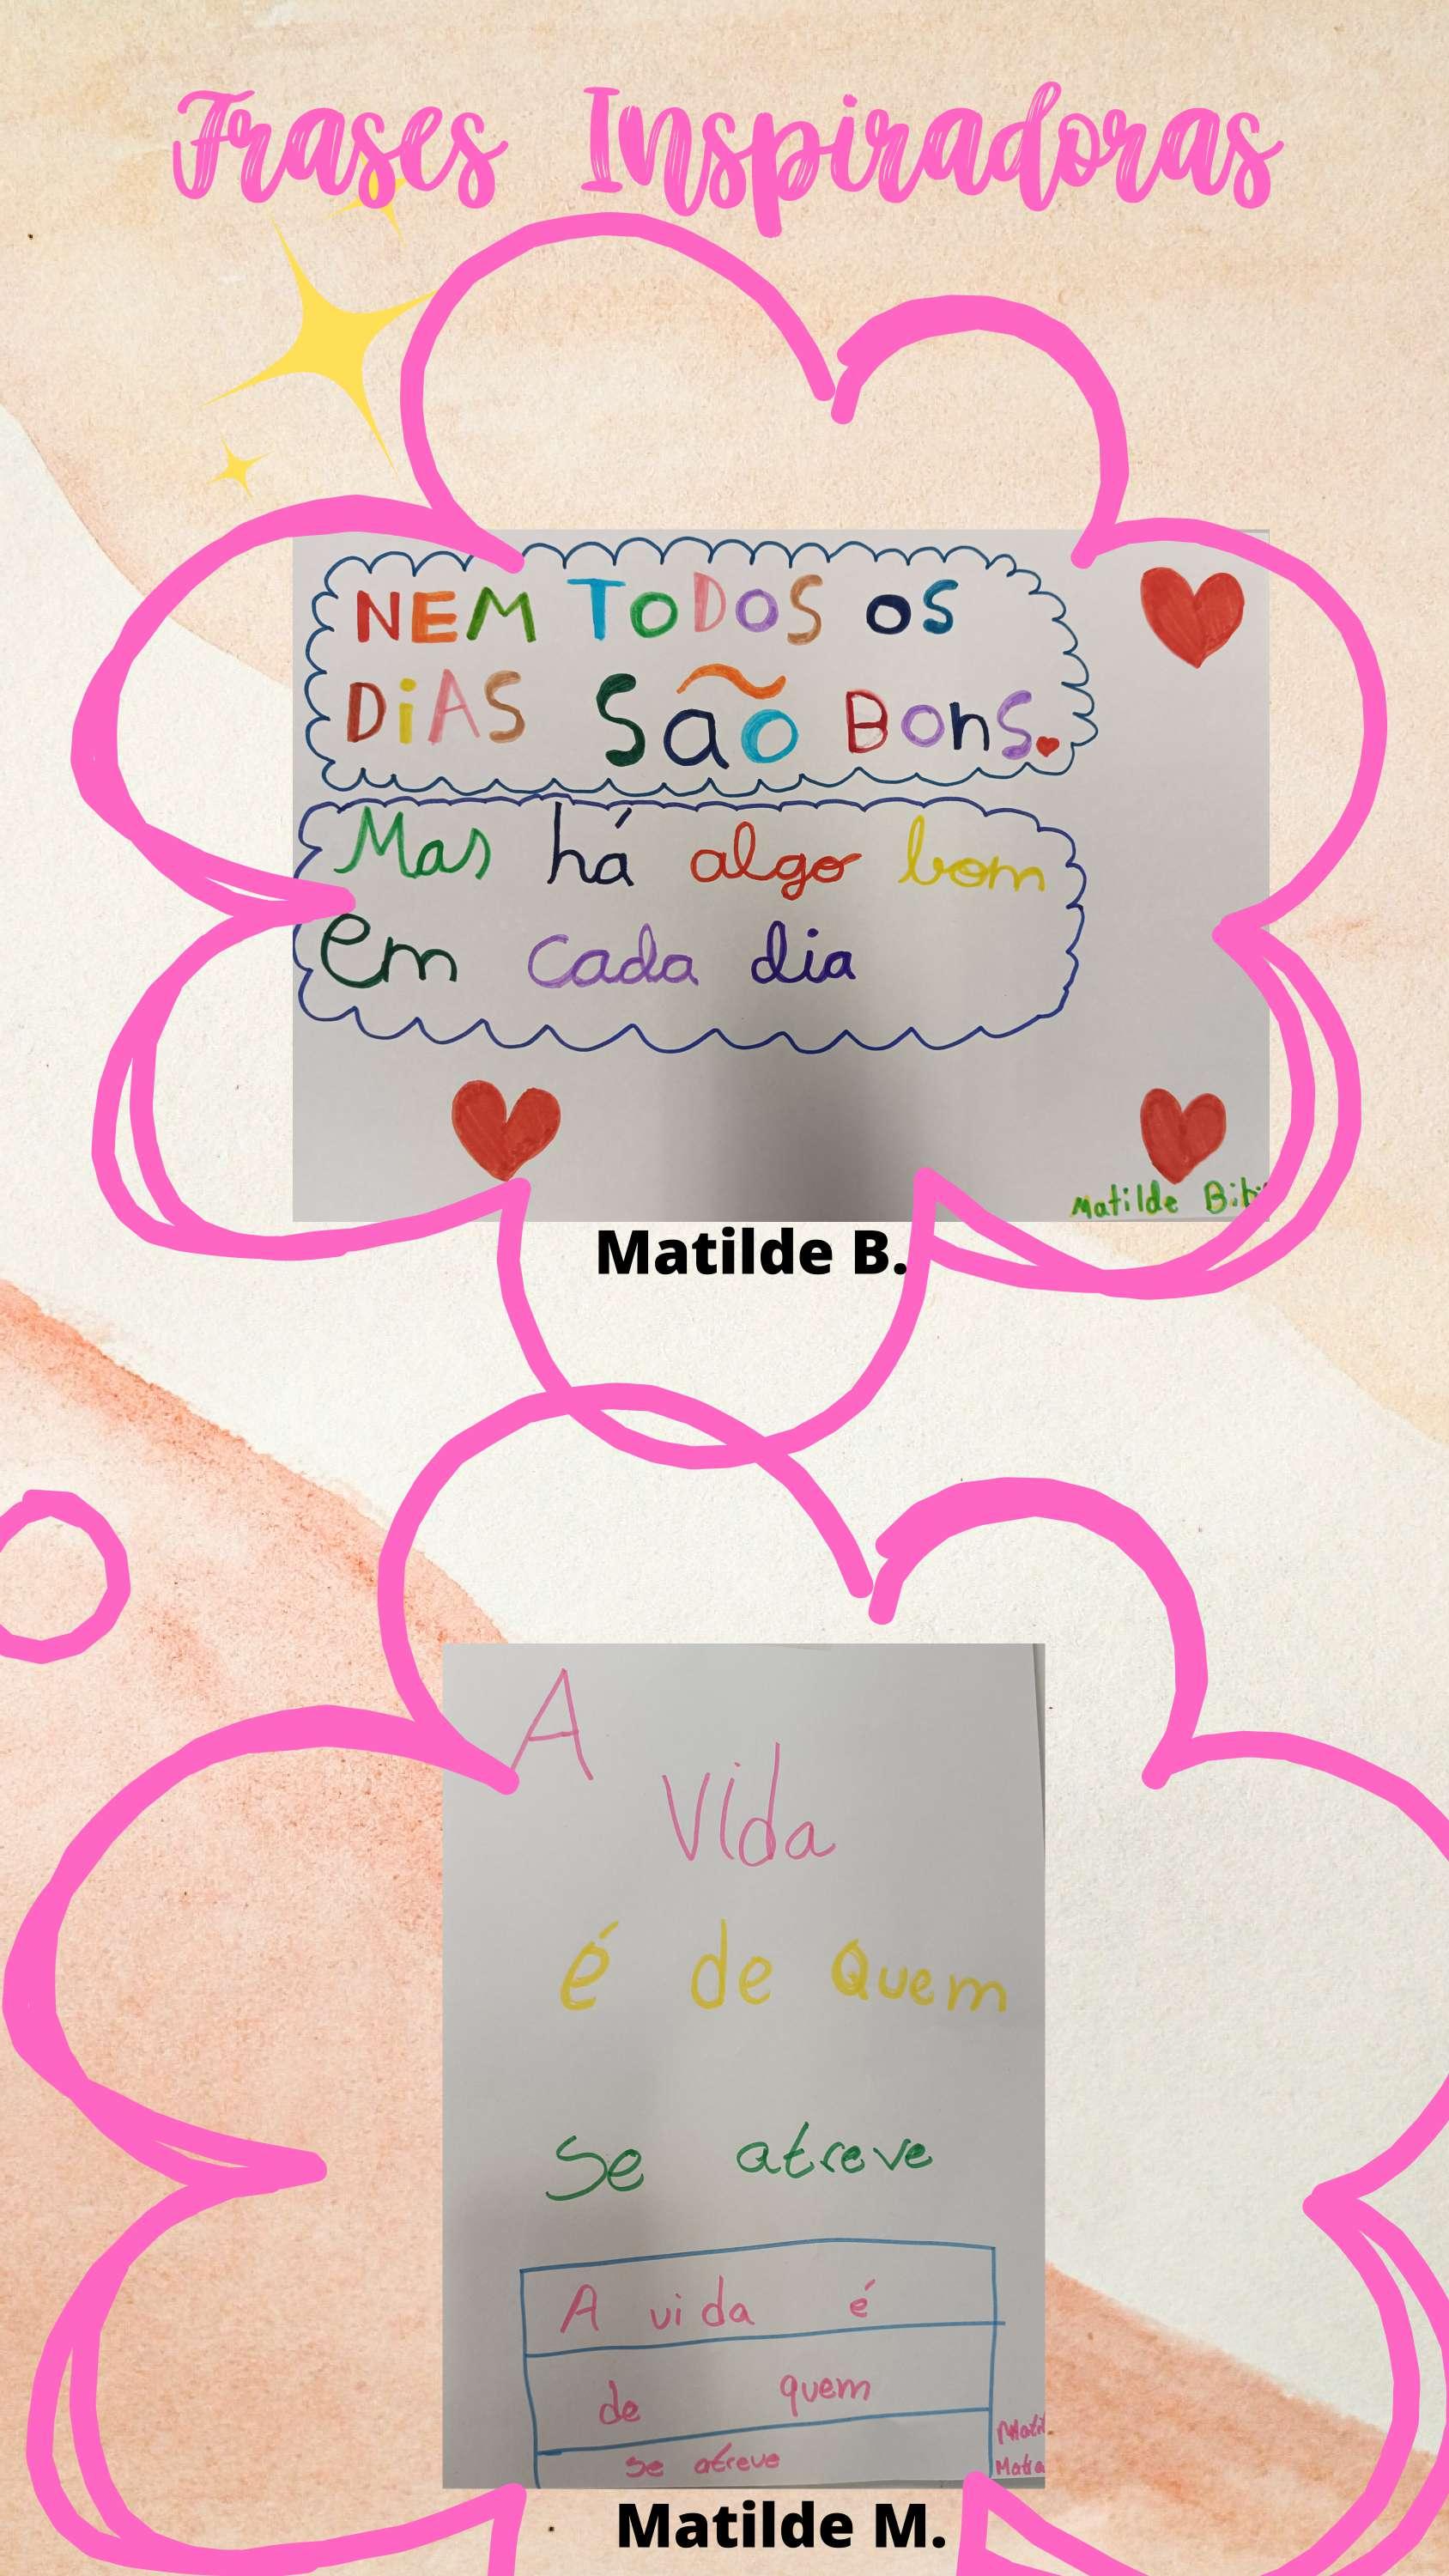 Frases Inspiradoras
NEM TODOS OS
DiAS São BonS.
Mas há algo bom
em cada dia
Matilde
Matilde B.
A
vida
é de Quem
Se atreve
A vida é
de quem
se atreve
Matilde M.